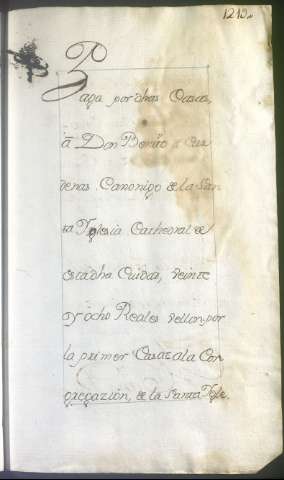 1219
Paga por dhas Casas,
â Don Benito de Car
denas Canonigo de la San
ta Iglesia Cathedral de
esta dha Ciudad, veinte
y ocho Reales vellon, por
la primer Casa: a la Con
gregazion, de la Santa Igle.